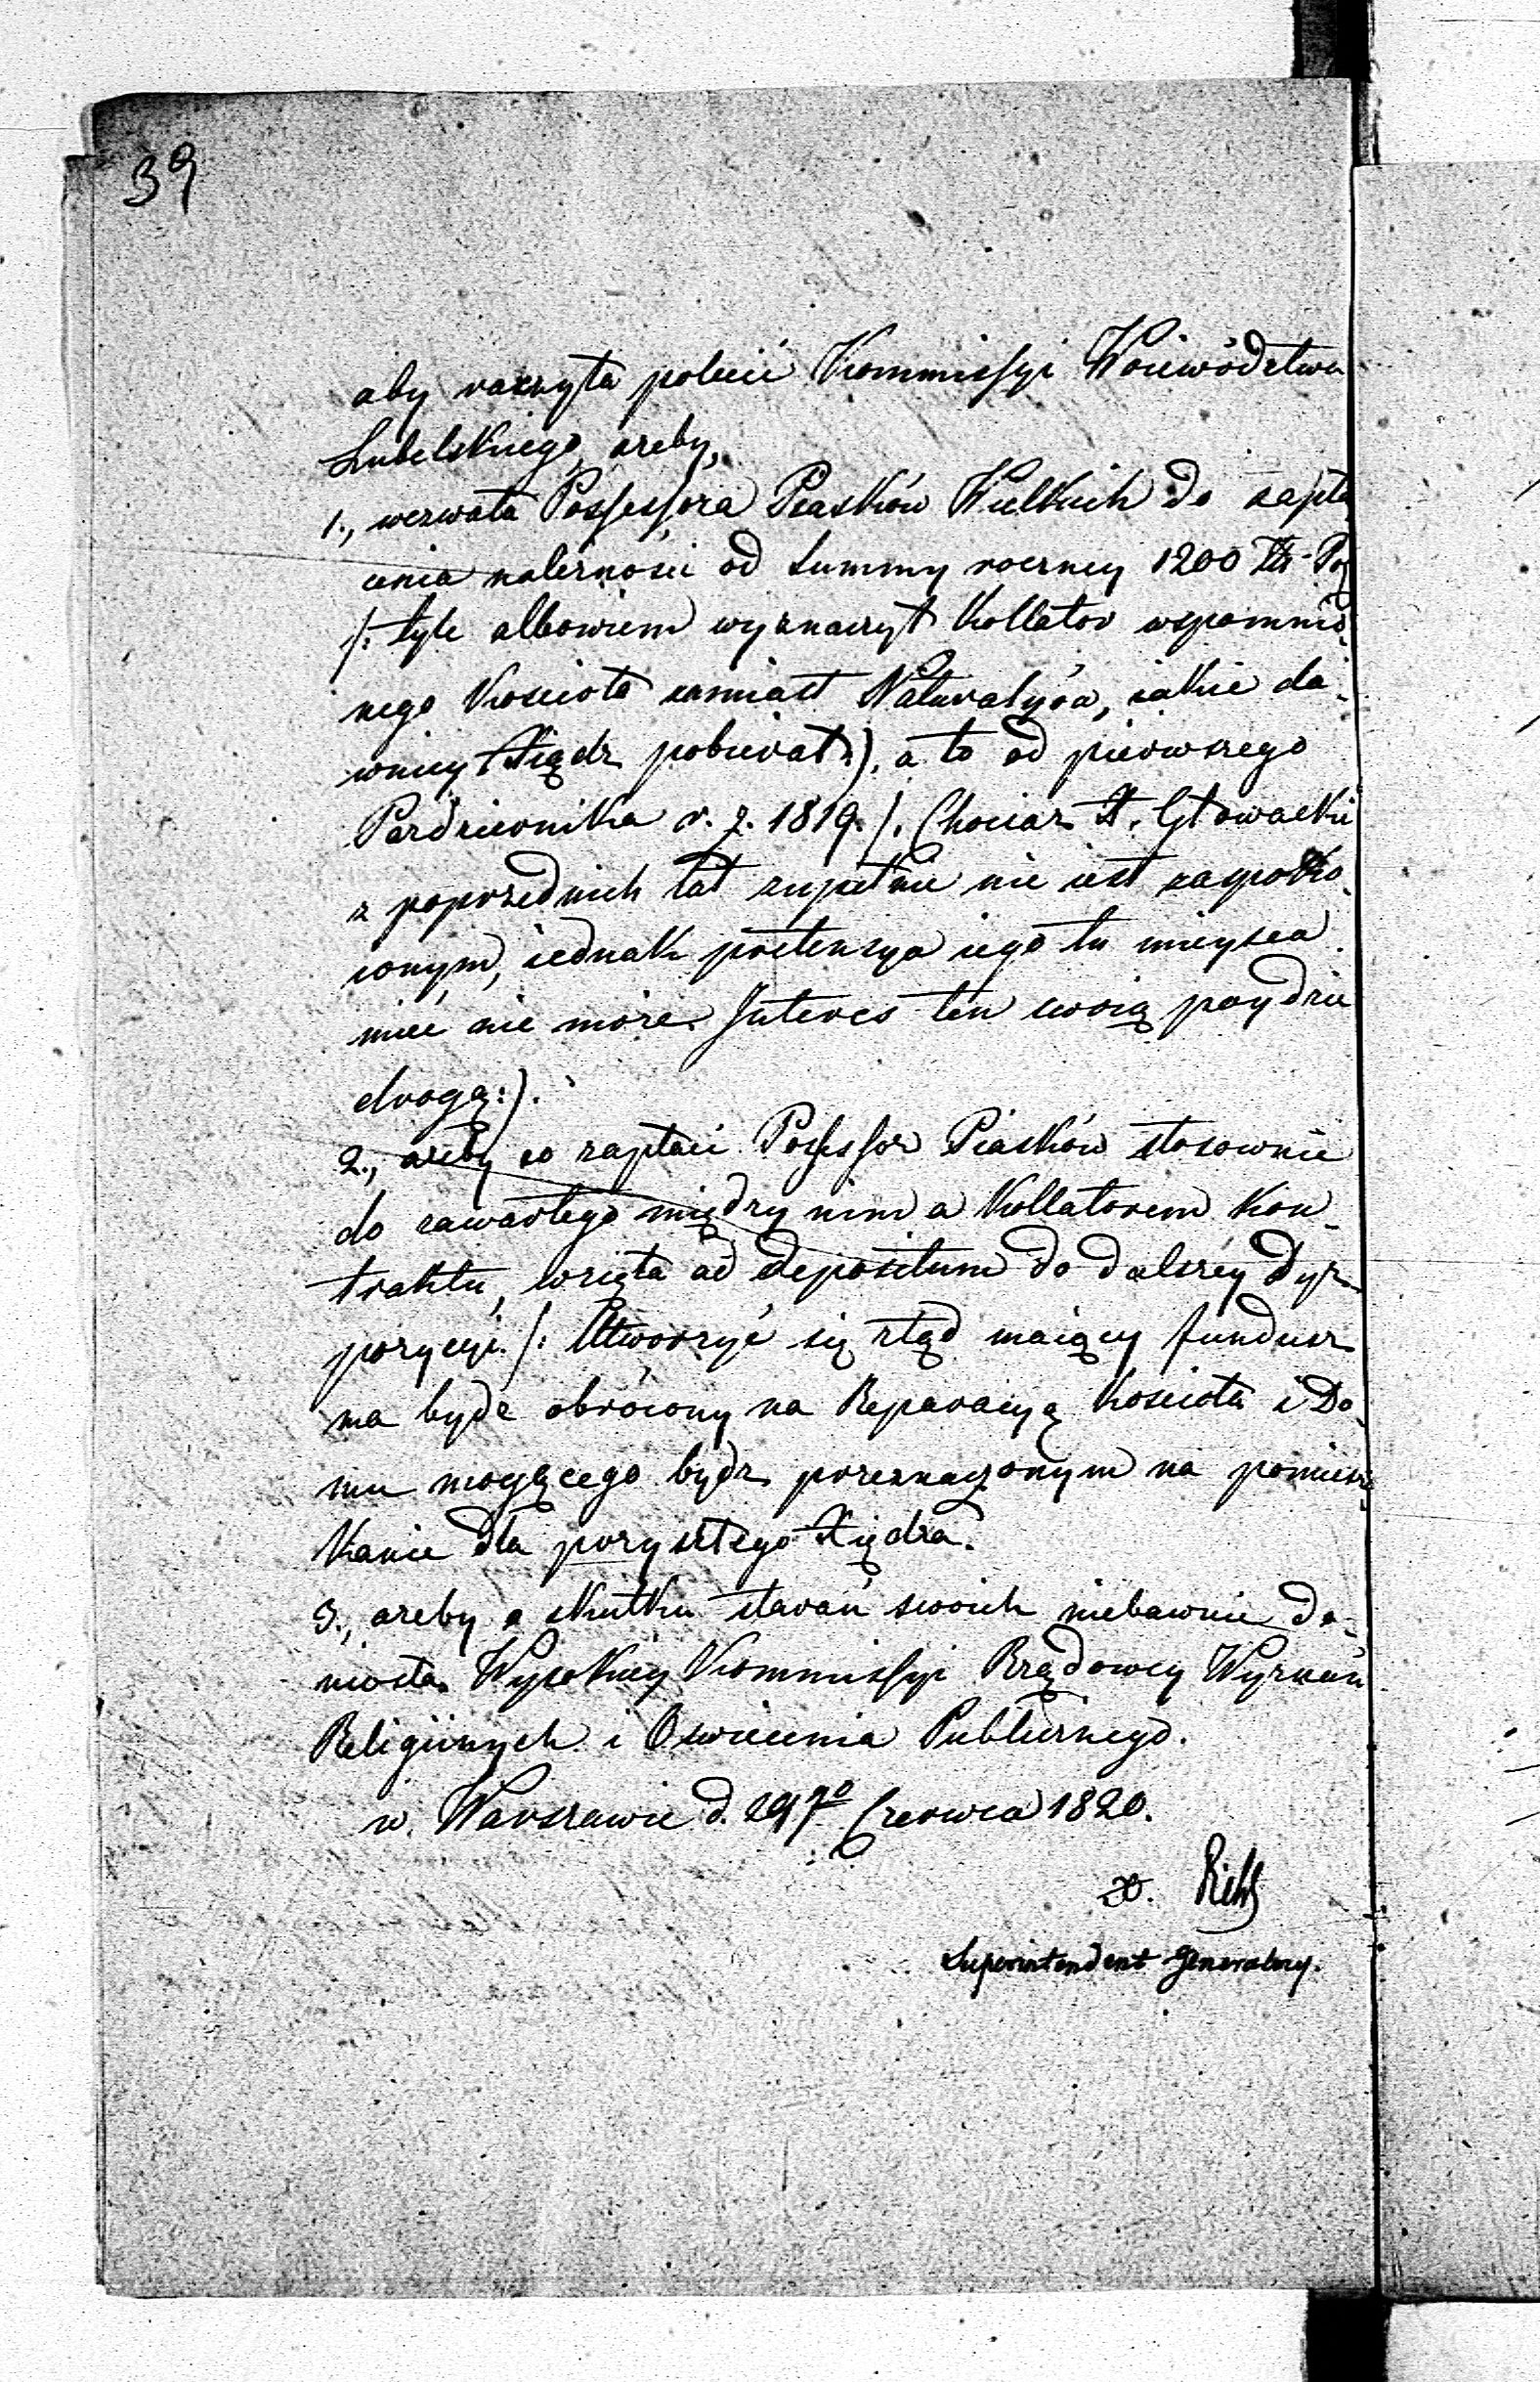 39
aby raczyła polecić Kommissyi Woiewództwa
Lubelskiego, ażeby,
1., wezwała Possessora Piasków Wielkich do zapła
cenia należności od Summy roczney 1200 Zł. Pol
/: tyle albowiem wyznaczył Kollator wspomnio,
nego Kościoła zamiast Naturalyów, jakie da,
wniey Xiądz pobierał:), a to od pierwszego
Października r. z. 1819. /. Chociaż X. Głowacki
z poprzednich lat zupełnie nie iest zaspoko,
ionym, iednak pretensya iego tu mieysca
mieć nie może. Interes ten swoią poydzie
drogą:).
2., ażeby co zapłaci Possessor Piasków stosownie
do zawartego między nim a Kollatorem Kon,
traktu, wzięła ad depositum do dalszéy dys,
pozycyi. /: Utworzyć się ztąd maiący fundusz
ma bydź obrócony na Reparacyą Kościoła i Do,
mu mogącego bydź przeznaczonym na pomiesz,
kanie dla przyszłego Xiędza.
3., ażeby o skutku starań swoich niebawnie do,
niosła Wysokiey Kommissyi Rządowey Wyznań
Religiinych i Oswiecenia Publicznego.
w. Warszawie d. 29go Czerwca 1820.
Superintendent Generalny.